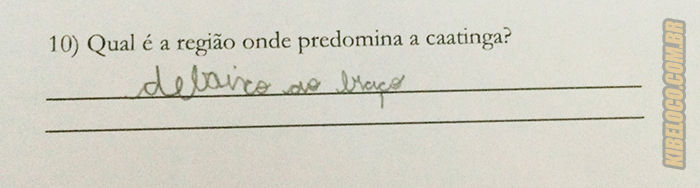 10) Qual é a região onde predomina a caatinga?
debaixo do braço
KIBELOCO.COM.BR